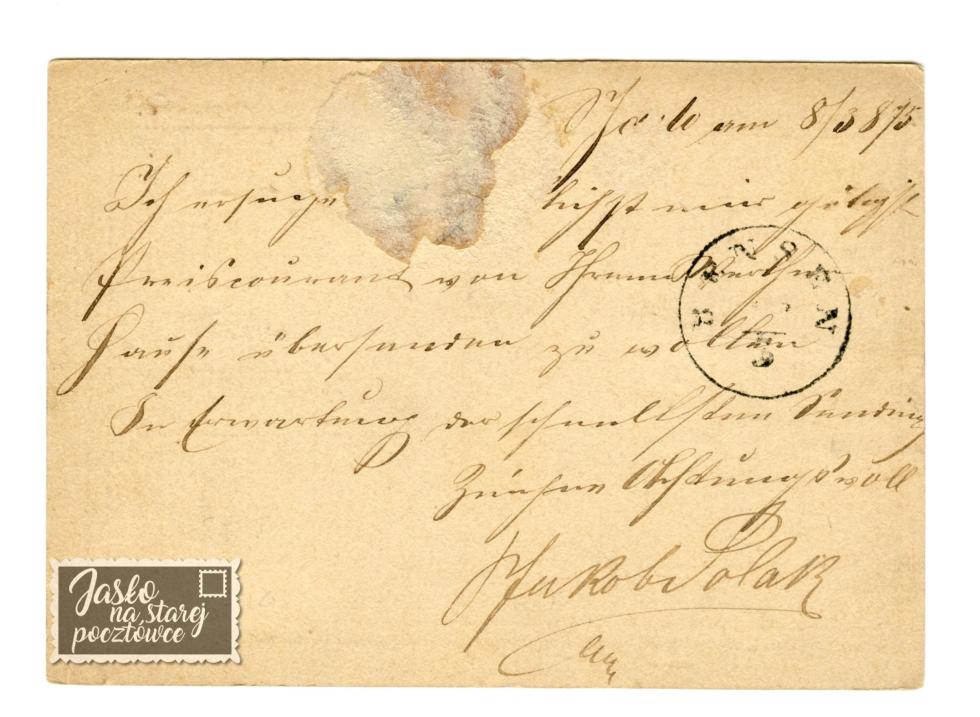 Jasło am 8/3 875
Ich ersuche höflichst mir gütigst
Preiscourant von Ihrem Werthen
Hause übersenden zu wollen
In Erwartung der schnellsten Sendung
Zeichne Achtungsvoll
Jakob Polak
BENSEN
Jasło
na starej
pocztówce